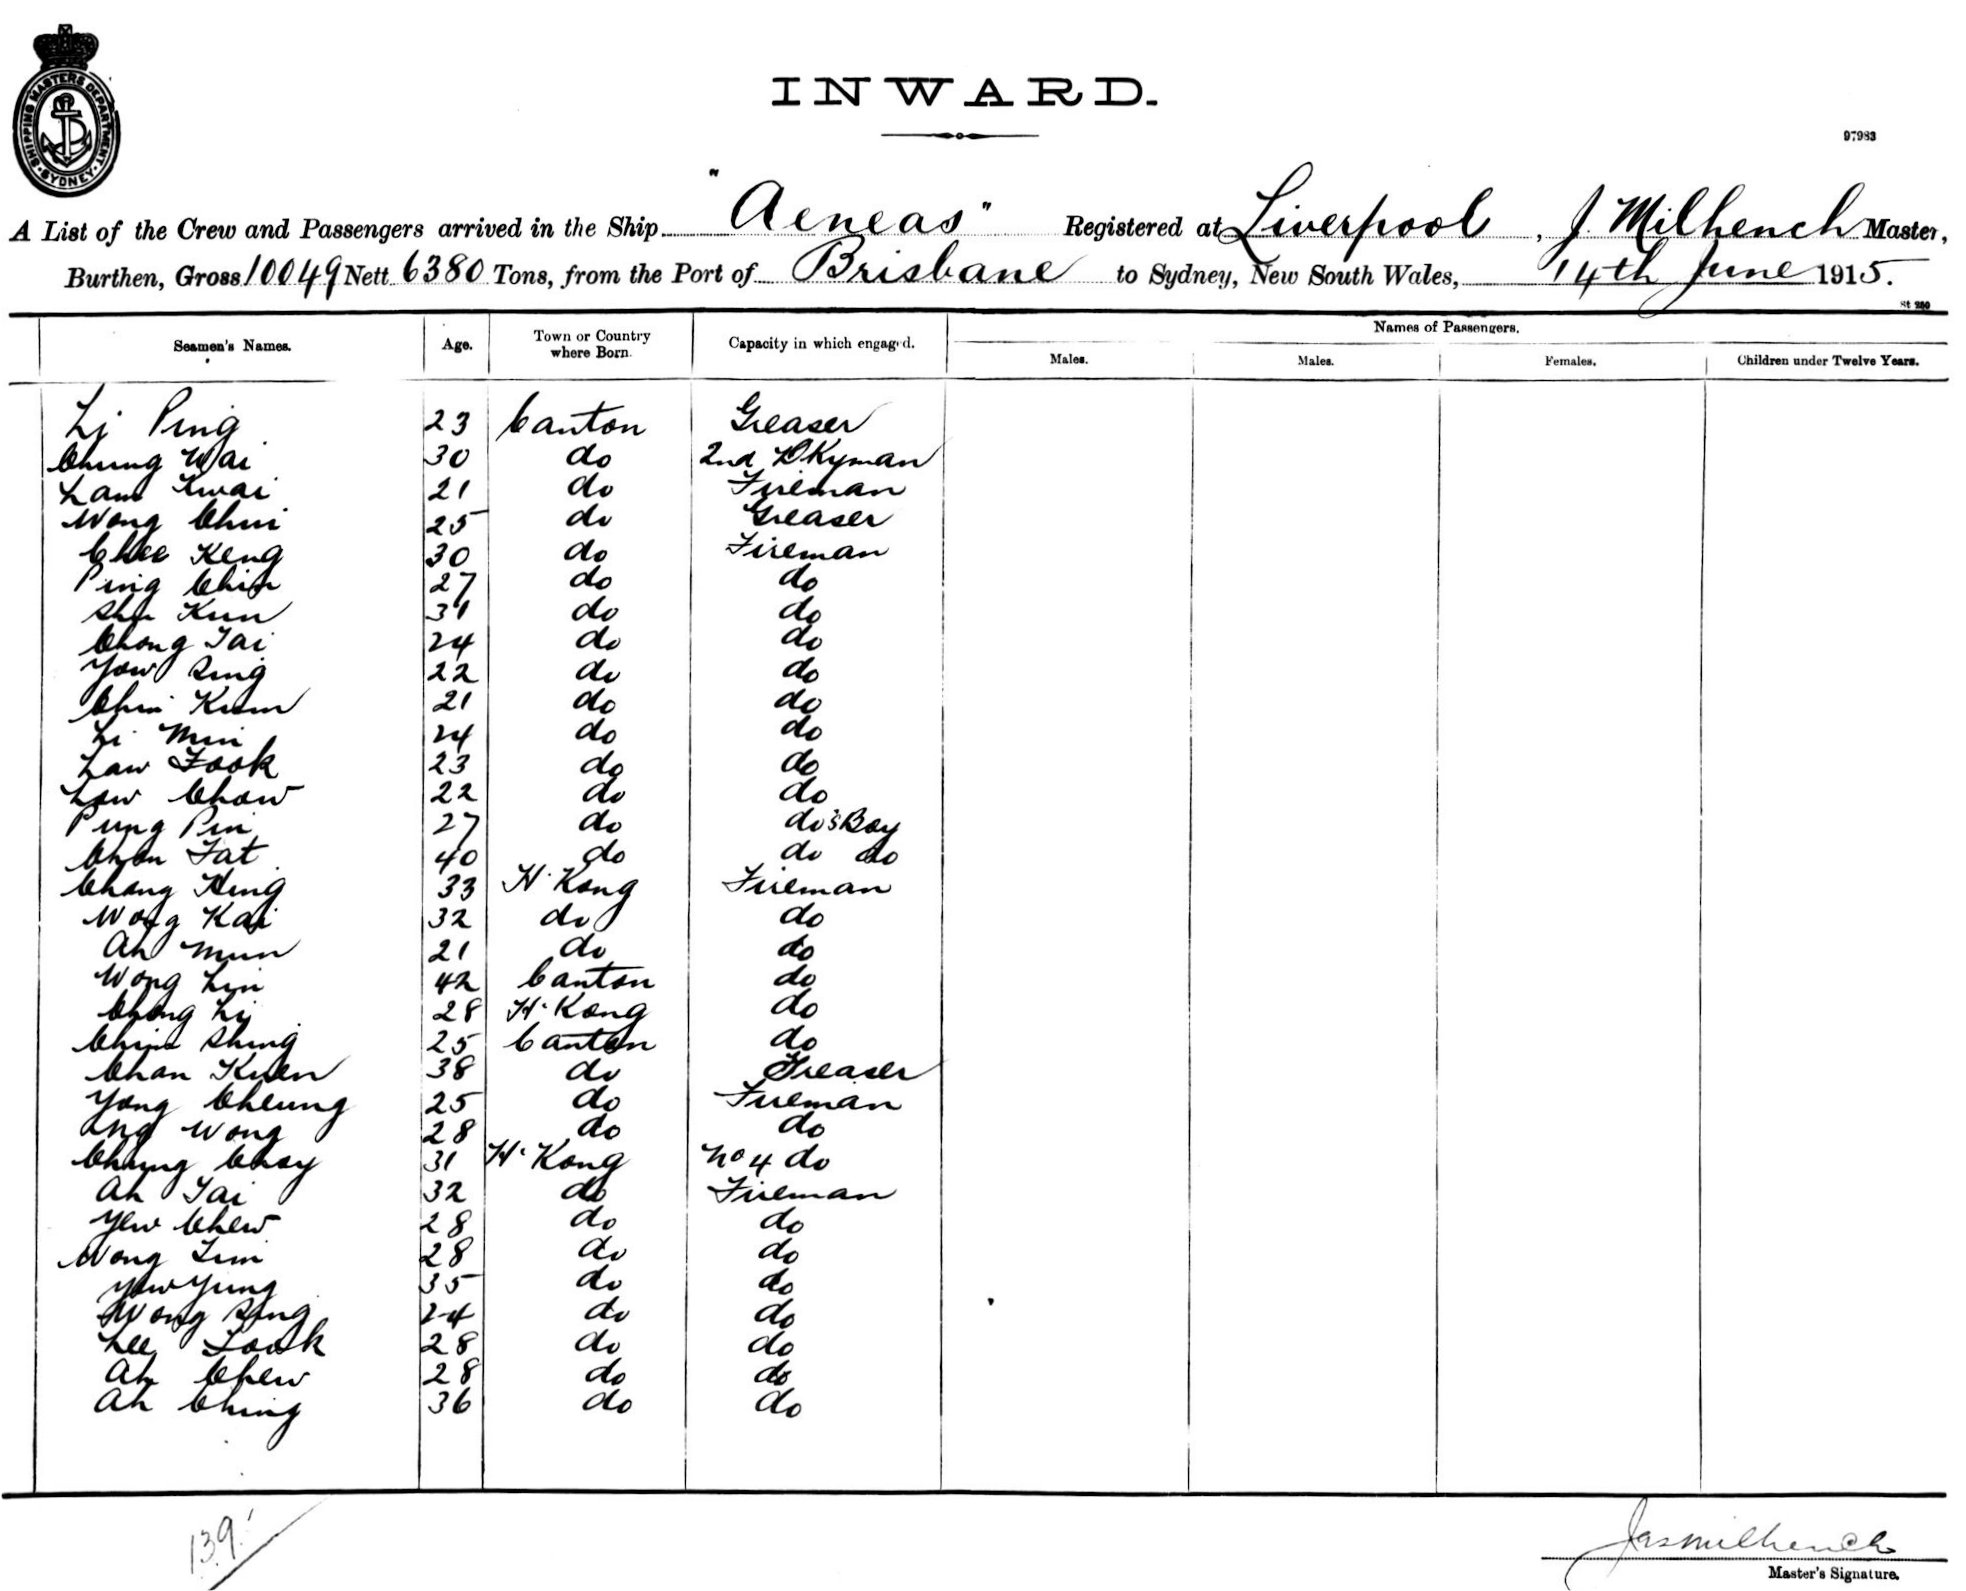 SHIPPING MASTERS DEPARTMENT. SYDNEY.
INWARD.
97983
A List of the Crew and Passengers arrived in the Ship "Aeneas" Registered at Liverpool, J. Milhench Master,
Burthen, Gross 10049 Nett 6380 Tons, from the Port of Brisbane to Sydney, New South Wales, 14th June 1915.
St 250
Seamen's Names. Age. Town or Country where Born. Capacity in which engaged. Names of Passengers.
Males. Males. Females. Children under Twelve Years.
Li Ping 23 Canton Greaser
Chung Wai 30 do 2nd DKyman
Lam Kwai 21 do Fireman
Wong Chui 25 do Greaser
Chee Keng 30 do Fireman
Ping Chin 27 do do
Shu Kun 31 do do
Chong Tai 24 do do
Yow Sing 22 do do
Chin Kum 21 do do
Li Min 24 do do
Law Fook 23 do do
Low Chow 22 do do
Pung Pin 27 do do's Boy
Chan Fat 40 do do do
Chang Hing 33 H. Kong Fireman
Wong Kai 32 do do
Ah Mun 21 do do
Wong Lin 42 Canton do
Chong Li 28 H. Kong do
Ching Shing 25 Canton do
Chan Kuen 38 do Greaser
Yong Cheung 25 do Fireman
Ang Wong 28 do do
Chung Choy 31 H. Kong No 4 do
Ah Tai 32 do Fireman
Yew Chew 28 do do
Wong Lim 28 do do
Yew Yung 35 do do
Wong Sing 24 do do
Lee Fook 28 do do
Ah Chew 28 do do
Ah Ching 36 do do
139
Jas Milhench
Master's Signature.